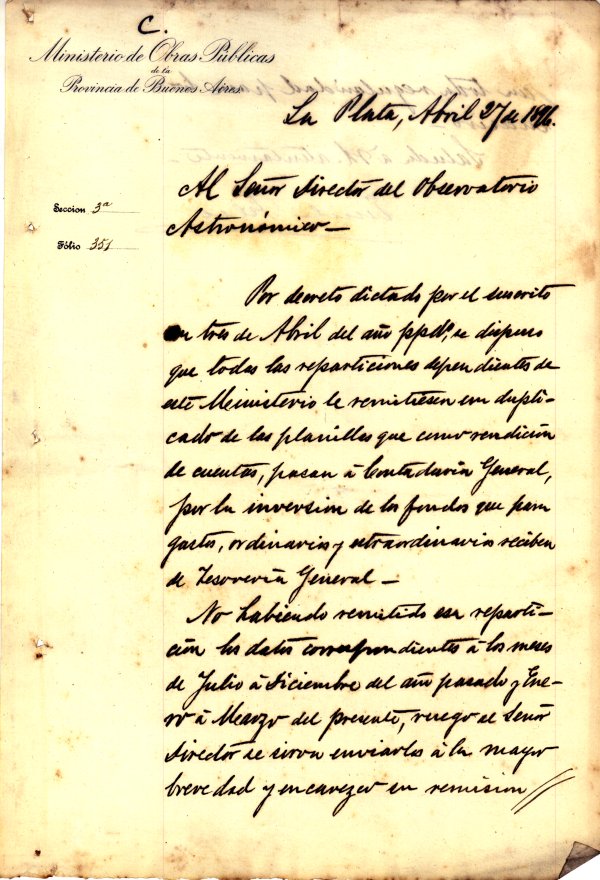 C.
Ministerio de Obras Públicas
de la
Provincia de Buenos Aires
La Plata, Abril 27 de 1896.
Al Señor Director del Observatorio
Astronómico—
Seccion 3ª
Fólio 351
Por decreto dictado por el suscrito
en tres de Abril del año ppdº, se dispuso
que todas las reparticiones dependientes de
este Ministerio le remitiesen un dupli-
cado de las planillas que como rendición
de cuentas, pasan á Contaduria General,
por la inversion de los fondos que para
gastos, ordinarios y extraordinarios reciben
de Tesoreria General—
No habiendo remitido esa reparti-
ción los datos correspondientes á los meses
de Julio á Diciembre del año pasado y Ene-
ro á Marzo del presente, ruego al Señor
Director se sirva enviarlos á la mayor
brevedad y encarezco su remision //